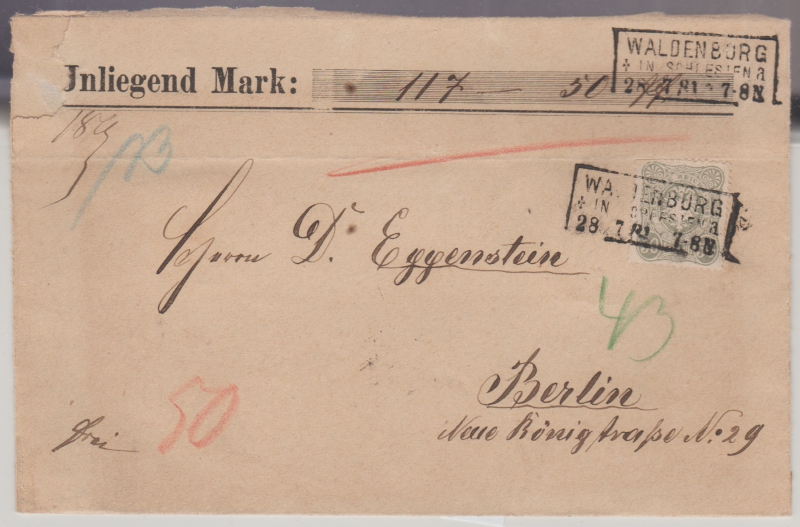 WALDENBURG
+ IN SCHLESIEN a
28 7 81 7-8N
Anliegend Mark: 117 — 50
WALDENBURG
+ IN SCHLESIEN a
28 7 81 7-8N
Herrn D. Eggenstein
43
Berlin
50
frei
Neue Königstraße No. 29